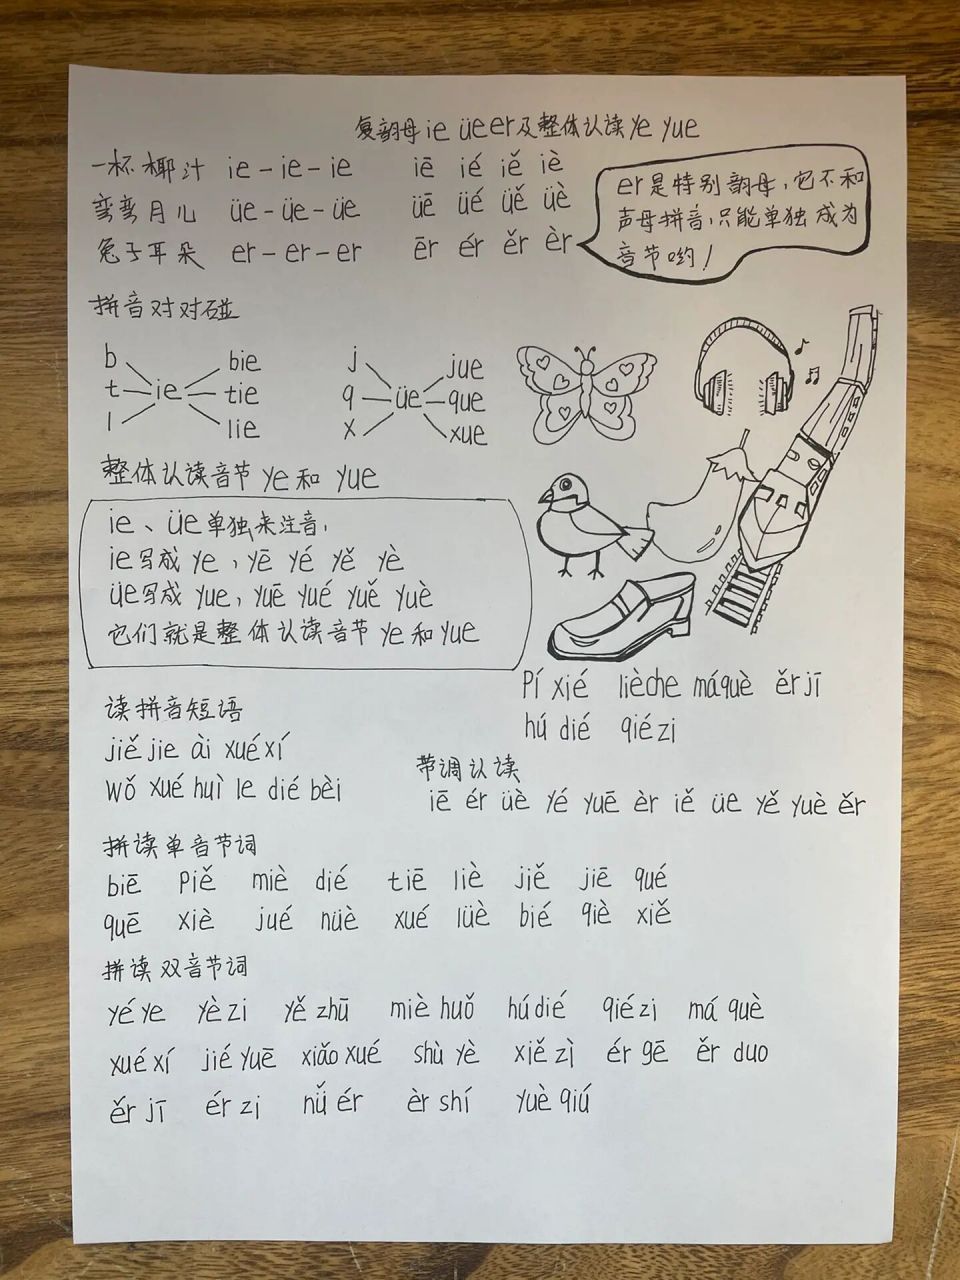 复韵母 ie üe er 及整体认读 ye yue
一杯椰汁 ie – ie – ie iē ié iě iè
弯弯月儿 üe – üe – üe üē üé üě üè
兔子耳朵 er – er – er ēr ér ěr èr
er是特别韵母,它不和
声母拼音,只能单独成为
音节哟!
拼音对对碰
b t l ie bie tie lie
j q x üe jue que xue
整体认读音节 ye 和 yue
ie、üe单独来注音,
ie写成 ye,yē yé yě yè
üe写成 yue,yuē yué yuě yuè
它们就是整体认读音节 ye 和 yue
Pí xié lièche máquè ěr jī
hú dié qié zi
读拼音短语
jiě jie ài xué xí
wǒ xué huì le dié bèi
带调认读
iē ér üè yé yuē èr iě üe yě yuè ěr
拼读单音节词
biē piě miè dié tiē liè jiě jiē qué
quē xiè jué nüè xué lüè bié qiè xiě
拼读双音节词
yé ye yè zi yě zhū miè huǒ hú dié qié zi má què
xué xí jié yuē xiǎo xué shù yè xiě zì ér gē ěr duo
ěr jī ér zi nǚ ér èr shí yuè qiú